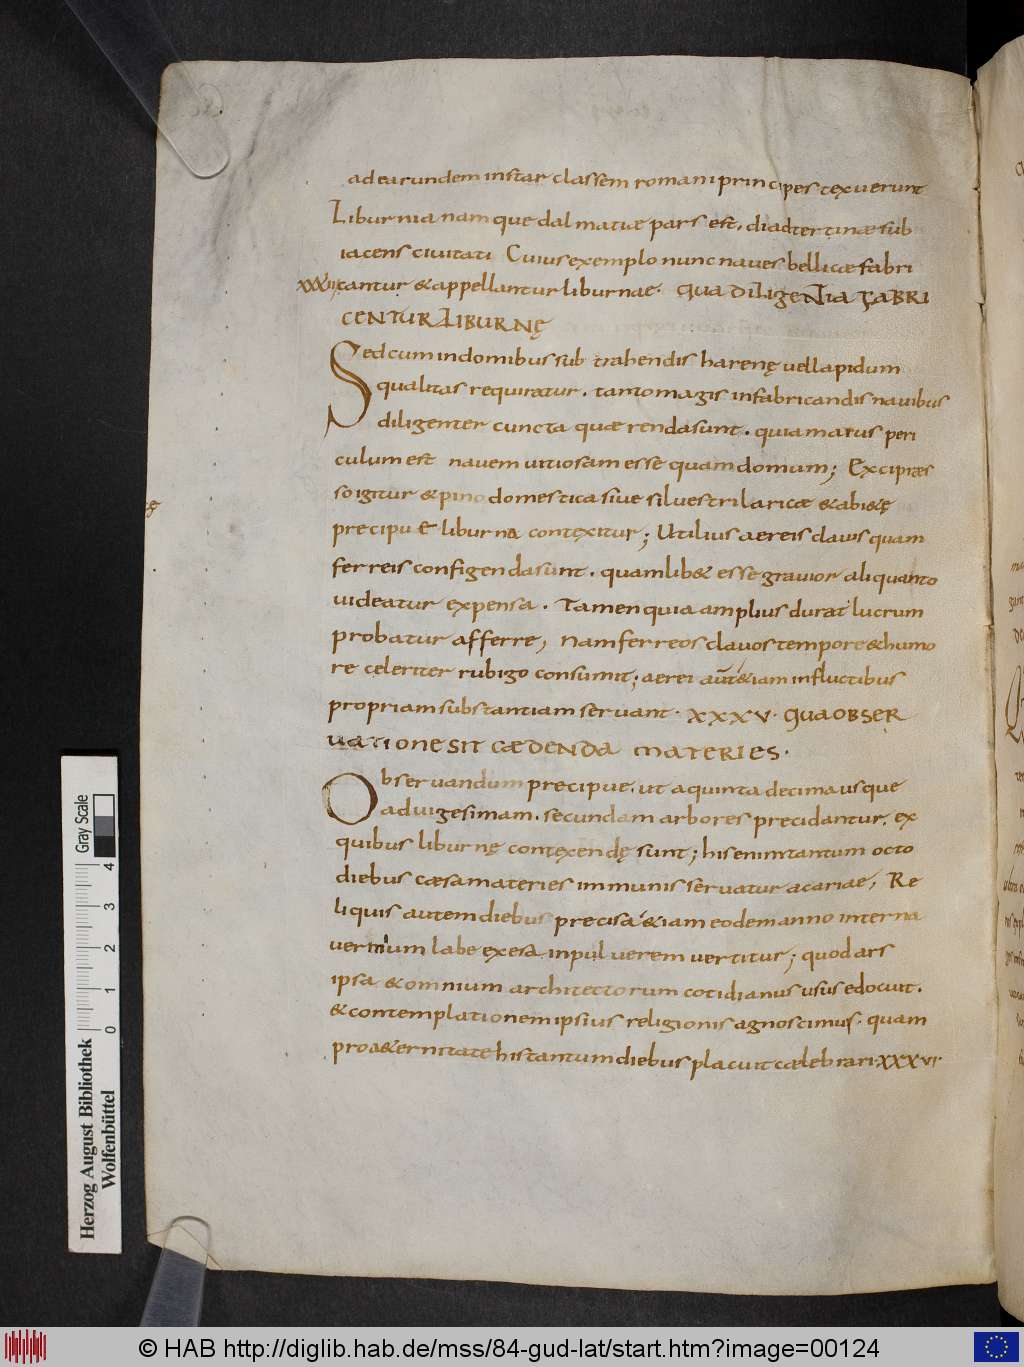 ad earundem instar classem romani principes texuerunt
Liburnia namque dalmatiæ pars est, diadtertinæ sub
iacens ciuitati Cuius exemplo nunc naues bellicæ fabri
XXXIIII cantur & appellantur liburnae. QUA DILIGENTIA FABRI
CENTUR LIBURNĘ
Sed cum in domibus sub trahendis harenę uel lapidum
qualitas requiratur. tanto magis in fabricandis nauibus
diligenter cuncta quærenda sunt. quia maius peri
culum est nauem uitiosam esse quam domum; Ex cipræs
so igitur & pino domestica siue siluestri laricæ & abi&ę
precipuę liburna contexitur; Utilius aereis clauis quam
ferreis configenda sunt. quamlib& esse grauior aliquanto
uideatur expensa. Tamen quia amplius durat lucrum
probatur afferre; nam ferreos clauos tempore & humo
re celeriter rubigo consumit; aerei aut& iam in fluctibus
propriam substantiam seruant. XXXV. QUA OBSER
UATIONE SIT CÆDENDA MATERIES.
Obseruandum precipue. ut a quinta decima usque
ad uigesimam. secundam arbores precidantur. ex
quibus liburnę contexendę sunt; his enim tantum octo
diebus cæsa materies immunis seruatur a cariae; Re
liquis autem diebus precisa &iam eodem anno interna
uermium labe exesa in puluerem uertitur; quod ars
ipsa & omnium architectorum cotidianus usus edocuit.
& contemplationem ipsius religionis agnoscimus. quam
pro a&ernitate his tantum diebus placuit cælebrari XXXVI.
Gray Scale
0 1 2 3 4
Herzog August Bibliothek
Wolfenbüttel
© HAB http://diglib.hab.de/mss/84-gud-lat/start.htm?image=00124